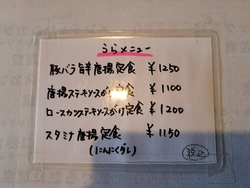 うらメニュー
豚バラ旨辛唐揚定食 ¥1250
唐揚ステーキソースがけ定食 ¥1100
ロースカツステーキソースがけ定食 ¥1200
スタミナ唐揚定食 ¥1150
(にんにくダレ)
税込